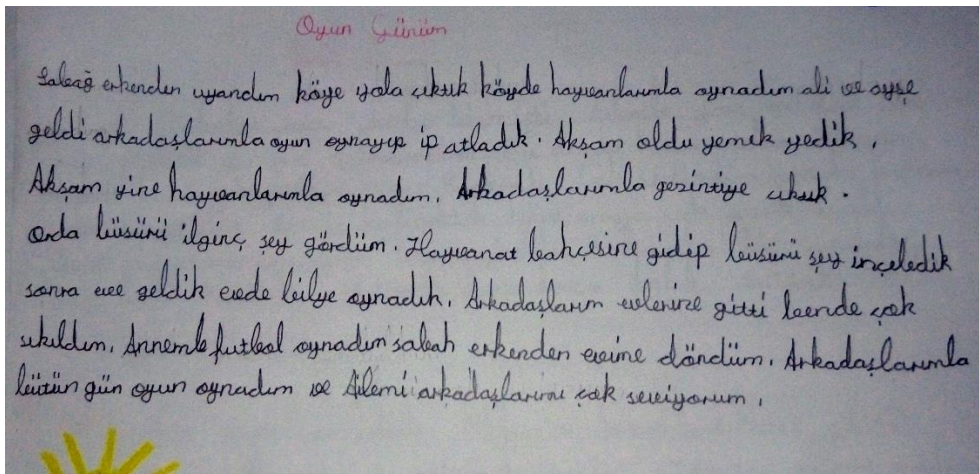 Oyun Günüm
Sabağ erkenden uyandım köye yola çıktık köyde hayvanlarımla oynadım ali ve ayşe
geldi arkadaşlarımla oyun oynayıp ip atladık. Akşam oldu yemek yedik.
Akşam yine hayvanlarımla oynadım. Arkadaşlarımla gezintiye çıktık.
Orda büsürü ilginç şey gördüm. Hayvanat bahçesine gidip büsürü şey inçeledik
sonra eve geldik evde bilye oynadık. Arkadaşlarım evlerine gitti bende çok
sıkıldım. Annemle futbol oynadım sabah erkenden evime döndüm. Arkadaşlarımla
bütün gün oyun oynadım ve Ailemi arkadaşlarımı çok seviyorum.